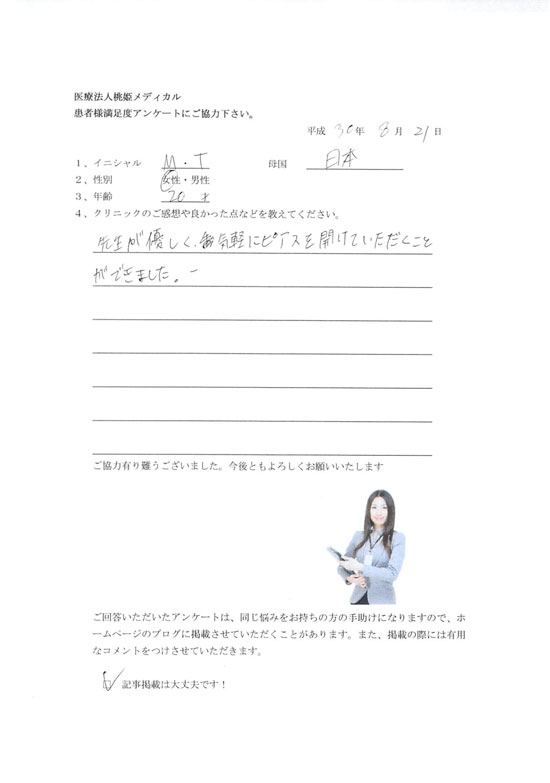 医療法人桃姫メディカル
患者様満足度アンケートにご協力下さい。
平成 30年 8月 21日
1、イニシャル M・T 母国 日本
2、性別 女性・男性
3、年齢 20才
4、クリニックのご感想や良かった点などを教えてください。
先生が優しく、気軽にピアスを開けていただくこと
ができました。
ご協力有り難うございました。今後ともよろしくお願いいたします
ご回答いただいたアンケートは、同じ悩みをお持ちの方の手助けになりますので、ホ
ームページのブログに掲載させていただくことがあります。また、掲載の際には有用
なコメントをつけさせていただきます。
記事掲載は大丈夫です！